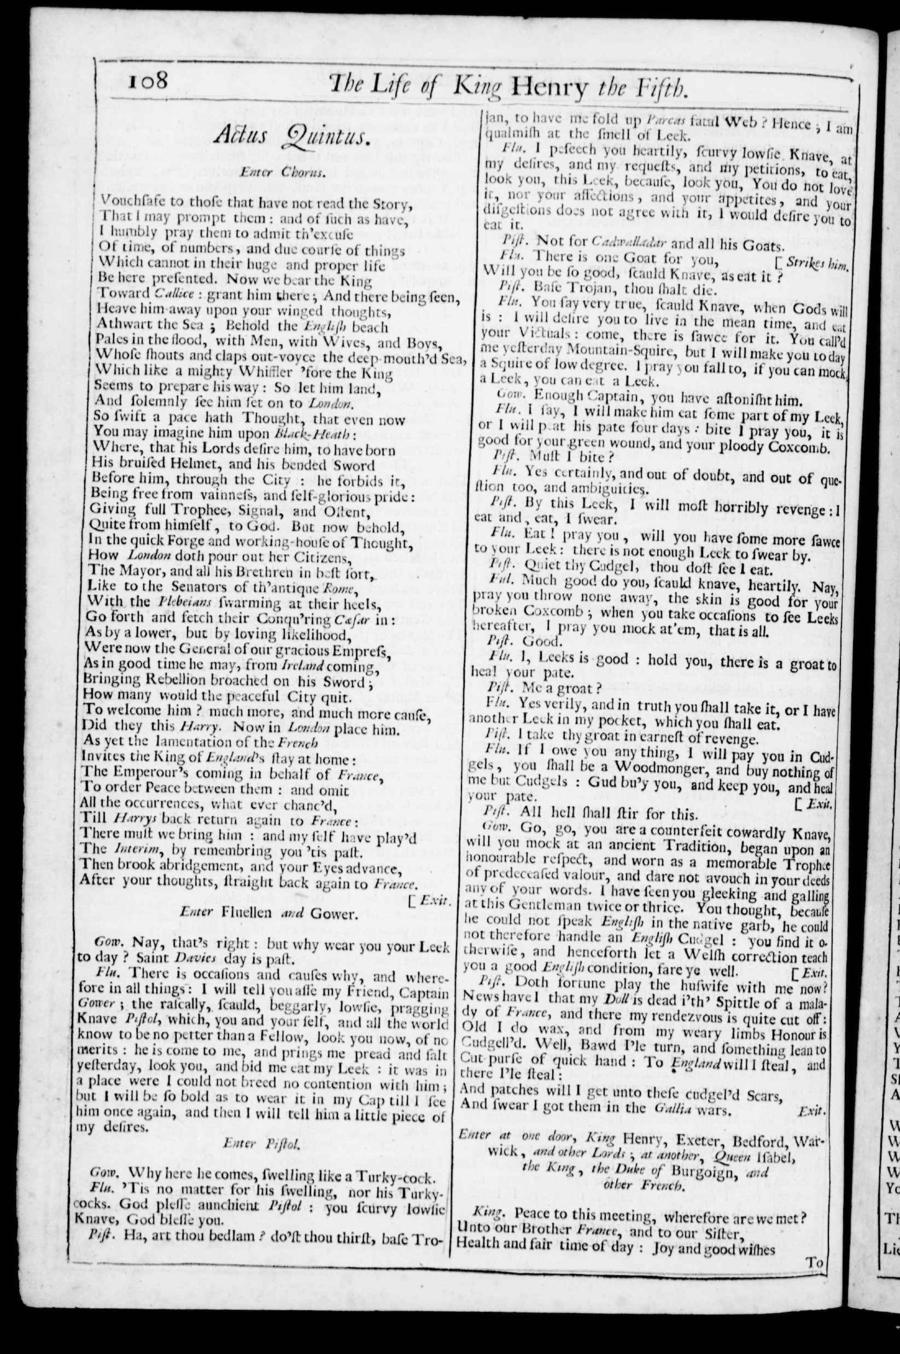 108
The Life of King Henry the Fifth.
Actus Quintus.
Enter Chorus.
Vouchſafe to thoſe that have not read the Story,
That I may prompt them : and of ſuch as have,
I humbly pray them to admit th'excuſe
Of time, of numbers, and due courſe of things
Which cannot in their huge and proper life
Be here preſented. Now we bear the King
Toward Callice : grant him there ; And there being ſeen,
Heave him away upon your winged thoughts,
Athwart the Sea ; Behold the Engliſh beach
Pales in the flood, with Men, with Wives, and Boys,
Whoſe ſhouts and claps out-voyce the deep-mouth'd Sea,
Which like a mighty Whiffler 'fore the King
Seems to prepare his way : So let him land,
And ſolemnly ſee him ſet on to London.
So ſwift a pace hath Thought, that even now
You may imagine him upon Black-Heath :
Where, that his Lords deſire him, to have born
His bruiſed Helmet, and his bended Sword
Before him, through the City : he forbids it,
Being free from vainneſs, and ſelf-glorious pride :
Giving full Trophee, Signal, and Oſtent,
Quite from himſelf, to God. But now behold,
In the quick Forge and working-houſe of Thought,
How London doth pour out her Citizens,
The Mayor, and all his Brethren in beſt ſort,
Like to the Senators of th'antique Rome,
With the Plebeians ſwarming at their heels,
Go forth and fetch their Conqu'ring Cæſar in :
As by a lower, but by loving likelihood,
Were now the General of our gracious Empreſs,
As in good time he may, from Ireland coming,
Bringing Rebellion broached on his Sword ;
How many would the peaceful City quit.
To welcome him ? much more, and much more cauſe,
Did they this Harry. Now in London place him.
As yet the lamentation of the French
Invites the King of England's ſtay at home :
The Emperour's coming in behalf of France,
To order Peace between them : and omit
All the occurrences, what ever chanc'd,
Till Harrys back return again to France :
There muſt we bring him : and my ſelf have play'd
The Interim, by remembring you 'tis paſt.
Then brook abridgement, and your Eyes advance,
After your thoughts, ſtraight back again to France.
[ Exit.
Enter Fluellen and Gower.
Gow. Nay, that's right : but why wear you your Leek
to day ? Saint Davies day is paſt.
Flu. There is occaſions and cauſes why, and where-
fore in all things : I will tell you aſſe my Friend, Captain
Gower ; the raſcally, ſcauld, beggarly, lowſie, pragging
Knave Piſtol, which, you and your ſelf, and all the world
know to be no petter than a Fellow, look you now, of no
merits : he is come to me, and prings me pread and ſalt
yeſterday, look you, and bid me eat my Leek : it was in
a place were I could not breed no contention with him ;
but I will be ſo bold as to wear it in my Cap till I ſee
him once again, and then I will tell him a little piece of
my deſires.
Enter Piſtol.
Gow. Why here he comes, ſwelling like a Turky-cock.
Flu. 'Tis no matter for his ſwelling, nor his Turky-
cocks. God pleſſe aunchient Piſtol : you ſcurvy lowſie
Knave, God bleſſe you.
Piſt. Ha, art thou bedlam ? do'ſt thou thirſt, baſe Tro-
jan, to have me fold up Parcas fatal Web ? Hence ; I am
qualmiſh at the ſmell of Leek.
Flu. I peſeech you heartily, ſcurvy lowſie Knave, at
my deſires, and my requeſts, and my petitions, to eat,
look you, this Leek, becauſe, look you, You do not love
it, nor your affections, and your appetites, and your
diſgeſtions does not agree with it, I would deſire you to
eat it.
Piſt. Not for Cadwalladar and all his Goats.
Flu. There is one Goat for you, [ Strikes him.
Will you be ſo good, ſcauld Knave, as eat it ?
Piſt. Baſe Trojan, thou ſhalt die.
Flu. You ſay very true, ſcauld Knave, when Gods will
is : I will deſire you to live in the mean time, and eat
your Victuals : come, there is ſawce for it. You call'd
me yeſterday Mountain-Squire, but I will make you to day
a Squire of low degree. I pray you fall to, if you can mock
a Leek, you can eat a Leek.
Gow. Enough Captain, you have aſtoniſht him.
Flu. I ſay, I will make him eat ſome part of my Leek,
or I will peat his pate four days : bite I pray you, it is
good for your green wound, and your ploody Coxcomb.
Piſt. Muſt I bite ?
Flu. Yes certainly, and out of doubt, and out of que-
ſtion too, and ambiguities.
Piſt. By this Leek, I will moſt horribly revenge : I
eat and, eat, I ſwear.
Flu. Eat I pray you, will you have ſome more ſawce
to your Leek : there is not enough Leek to ſwear by.
Piſt. Quiet thy Cudgel, thou doſt ſee I eat.
Ful. Much good do you, ſcauld knave, heartily. Nay,
pray you throw none away, the skin is good for your
broken Coxcomb ; when you take occaſions to ſee Leeks
hereafter, I pray you mock at'em, that is all.
Piſt. Good.
Flu. I, Leeks is good : hold you, there is a groat to
heal your pate.
Piſt. Me a groat ?
Flu. Yes verily, and in truth you ſhall take it, or I have
another Leek in my pocket, which you ſhall eat.
Piſt. I take thy groat in earneſt of revenge.
Flu. If I owe you any thing, I will pay you in Cud-
gels, you ſhall be a Woodmonger, and buy nothing of
me but Cudgels : Gud bu'y you, and keep you, and heal
your pate. [ Exit.
Piſt. All hell ſhall ſtir for this.
Gow. Go, go, you are a counterfeit cowardly Knave,
will you mock at an ancient Tradition, began upon an
honourable reſpect, and worn as a memorable Trophee
of predeceaſed valour, and dare not avouch in your deeds
any of your words. I have ſeen you gleeking and galling
at this Gentleman twice or thrice. You thought, becauſe
he could not ſpeak Engliſh in the native garb, he could
not therefore handle an Engliſh Cudgel : you find it o-
therwiſe, and henceforth let a Welſh correction teach
you a good Engliſh condition, fare ye well. [ Exit.
Piſt. Doth fortune play the huſwife with me now?
News have I that my Doll is dead i'th' Spittle of a mala-
dy of France, and there my rendezvous is quite cut off :
Old I do wax, and from my weary limbs Honour is
Cudgell'd. Well, Bawd I'le turn, and ſomething lean to
Cut purſe of quick hand : To England will I ſteal, and
there I'le ſteal :
And patches will I get unto theſe cudgel'd Scars,
And ſwear I got them in the Gallia wars. Exit.
Enter at one door, King Henry, Exeter, Bedford, War-
wick, and other Lords ; at another, Queen Iſabel,
the King, the Duke of Burgoign, and
other French.
King. Peace to this meeting, wherefore are we met ?
Unto our Brother France, and to our Siſter,
Health and fair time of day : Joy and good wiſhes
To